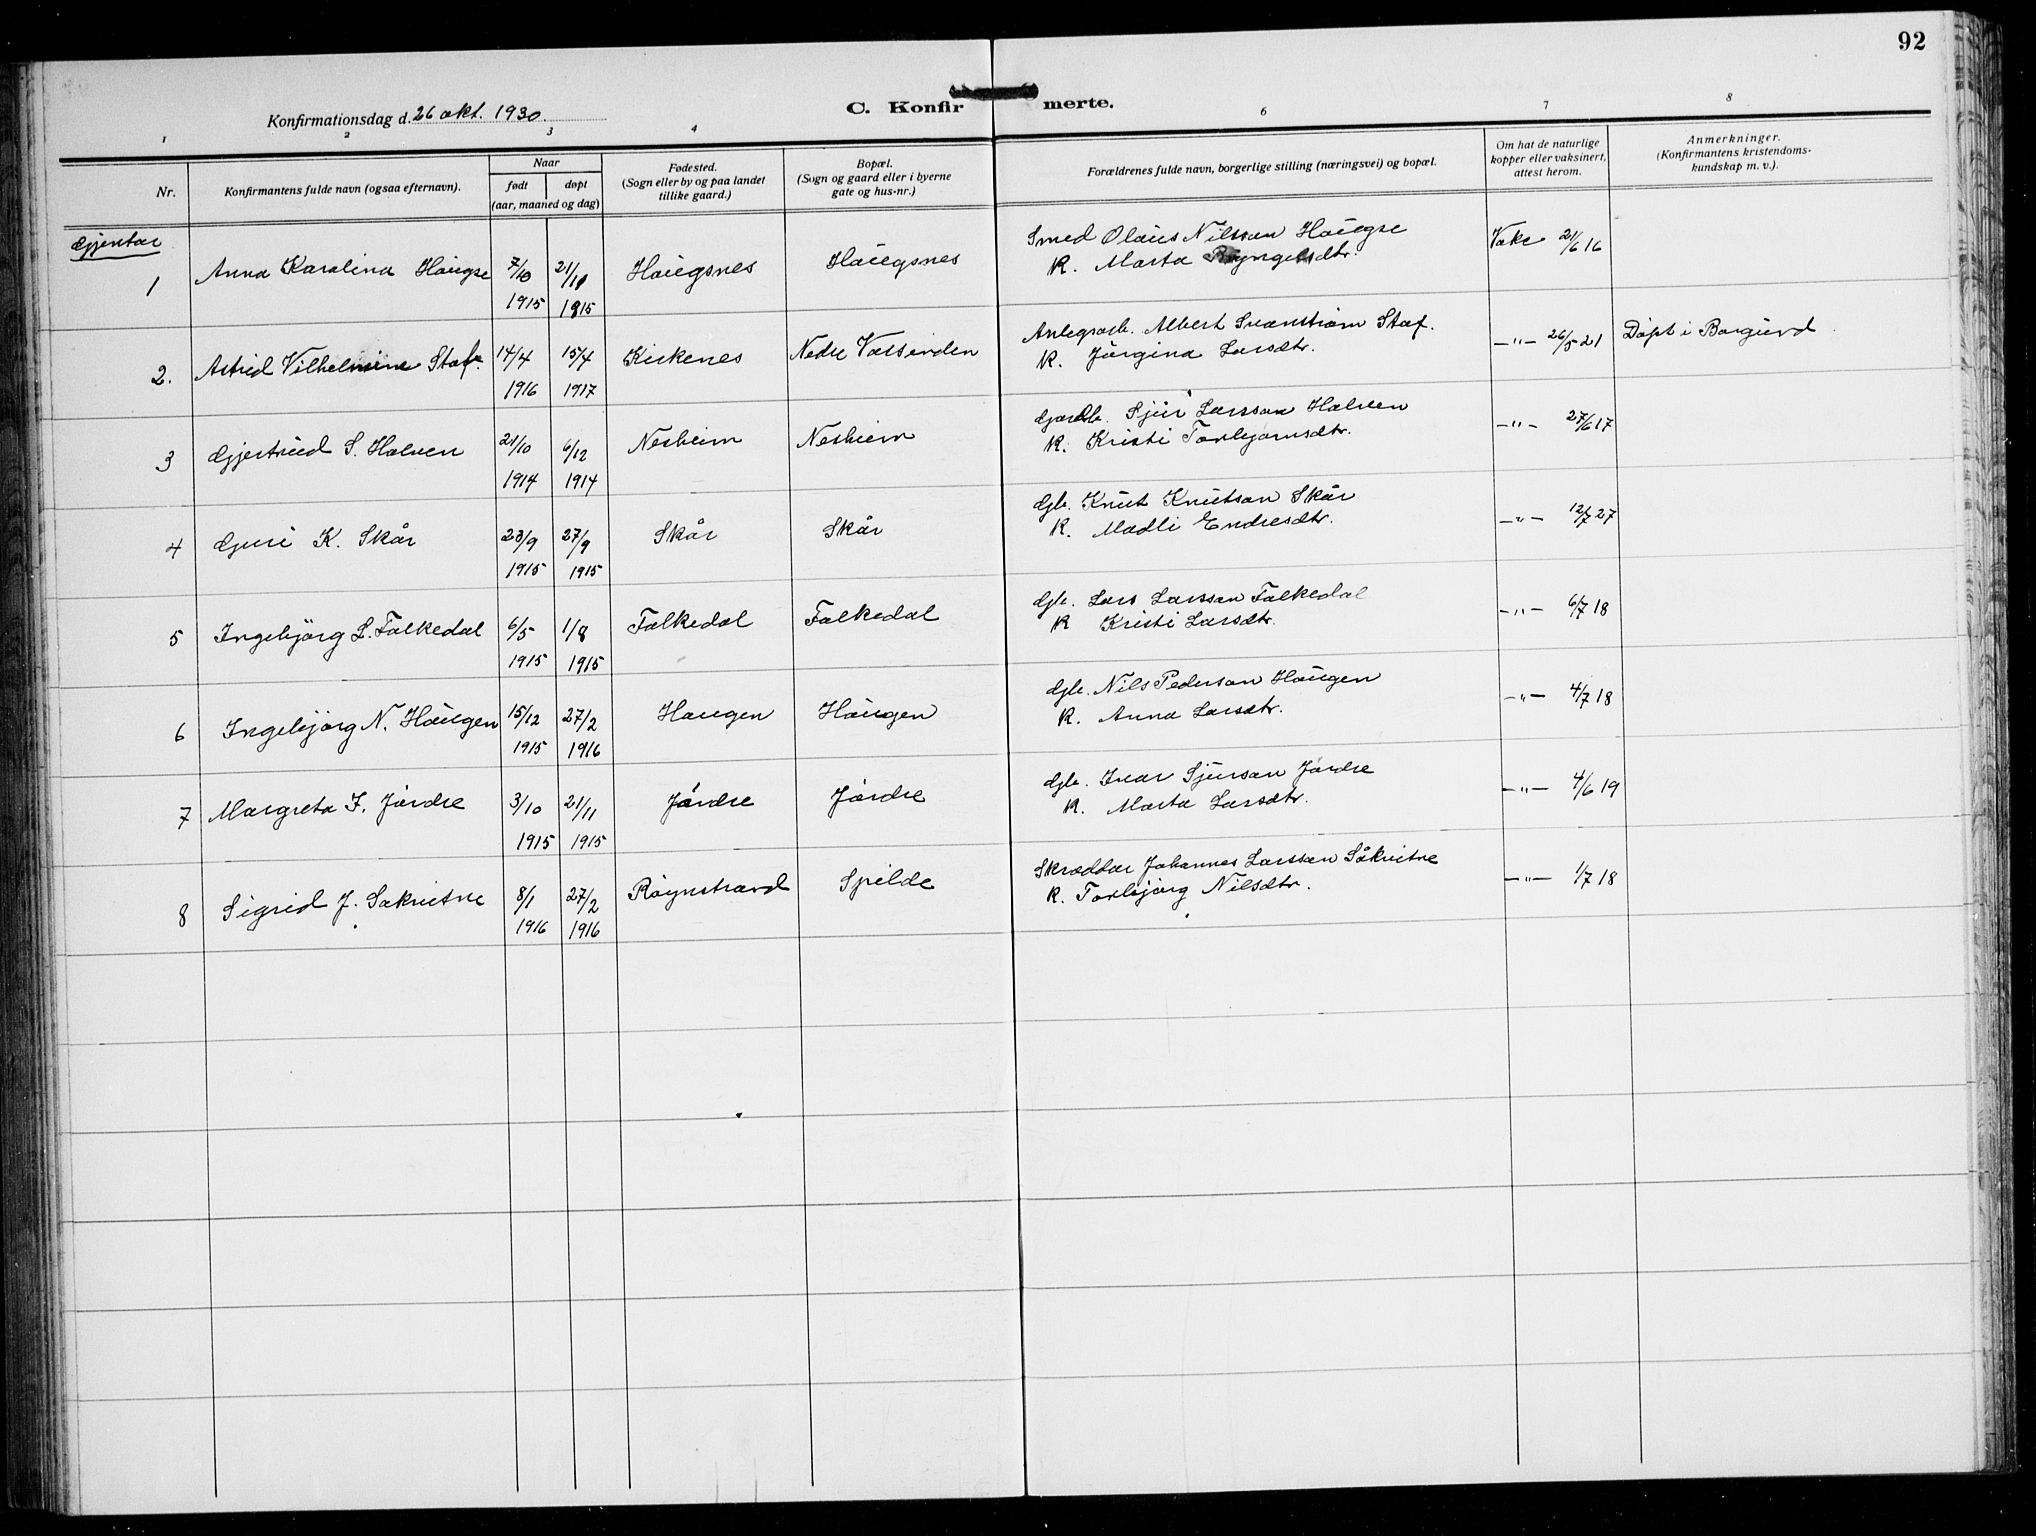 92
Konfirmationsdag d. 26 okt. 1930.
C. Konfirmerte.
1 2 3 4 6 7 8
Nr.
Konfirmantens fulde navn (ogsaa efternavn).
Naar
født døpt
(aar, maaned og dag)
Fødested.
(Sogn eller by og paa landet
tillike gaard.)
Bopæl.
(Sogn og gaard eller i byerne
gate og hus-nr.)
Forældrenes fulde navn, borgerlige stilling (næringsvei) og bopæl.
Om hat de naturlige
kopper eller vaksinert,
attest herom.
Anmerkninger.
(Konfirmantens kristendoms-
kundskap m. v.).
Gjentar
Smed Olaus Nilsson Haugse
1 Anna Karolina Haugse 7/10 21/11 Haugsnes Haugsnes K. Marta Vaks 21/6 16
1915 1915
Anlegsarb. Albert Svenstrøm Staf.
2. Astrid Vilhelmine Staf. 14/4 15/4 Kirkenes Nedre Vassenden K. Jörgina Larsdtr. -"- 26/5 21 Döpt i Borgund
1916 1917
Sjur Larsson Halven
3 Gjertrud S. Halven 21/10 6/12 Nesheim Nesheim K. Kristi Torbjornsdtr. -"- 27/6 17
1914 1914
Gb. Knut Knutson Skår
4 Guri K. Skår 23/9 27/9 Skår Skår K. Madli Endresdtr. -"- 12/7 27
1915 1915
Gb. Lars Larsson Falkedal
5 Ingebjörg L. Falkedal 6/5 1/8 Falkedal Falkedal K Kristi Larsdtr. -"- 6/7 18
1915 1915
Gb. Nils Pederson Haugen
6 Ingebjörg N. Haugen 15/12 27/2 Haugen Haugen K. Anna Larsdtr. -"- 4/7 18
1915 1916
Gb. Ivar Sjurson Jårdre
7 Margreta I. Jårdre 3/10 21/11 Jårdre Jårdre K. Marta Larsdtr. -"- 4/6 19
1915 1915
Skræddar Johannes Larsson Såkvitne
8 Sigrid J. Sakvitne 8/1 27/2 Röynstrand Spilde K. Torbjörg Nilsdtr. -"- 1/7 18
1916 1916